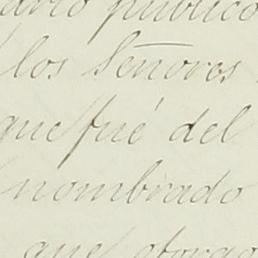 ario publico
los Señores
que fué del
nombrado
que otorgo